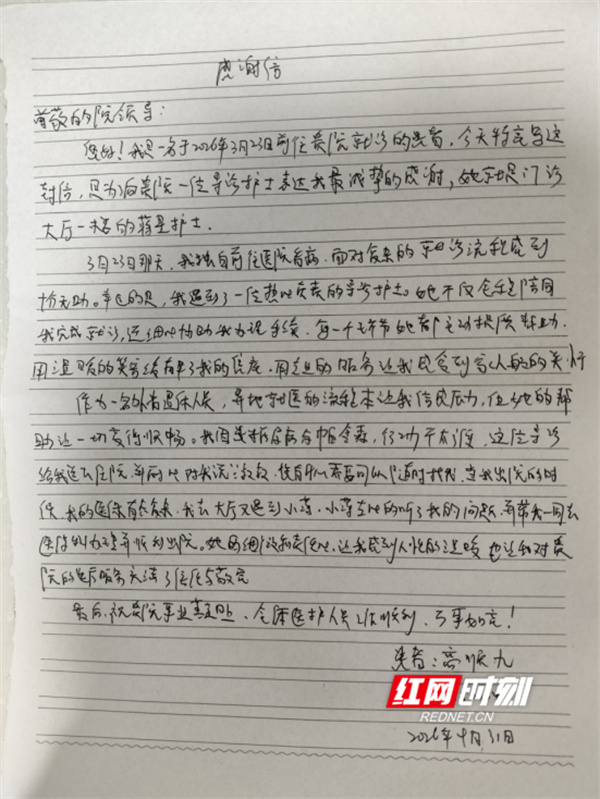 感谢信
尊敬的院领导：
您好！我是一名于2026年3月23日前往贵院就诊的患者，今天特意写这
封信，只为向贵院一位导诊护士表达我最诚挚的感谢，她就是门诊
大厅一楼的蒋星护士．
3月23日那天，我独自前往医院看病，面对复杂的就诊流程感到
无助。幸运的是，我遇到了一位热心负责的导诊护士。她不仅全程陪同
我完成就诊，还细心协助我办理手续，每一个环节她都主动提供帮助．
用温暖的笑容缓解了我的焦虑，用专业的服务让我感受到家人般的关怀
作为一名外省退休人员，异地就医的流程本让我倍感压力，但她的帮
助让一切变得顺畅。我因是，行动不方便，这位导诊
给我送去住院，
，我的医保有，我去大厅又遇到小蒋，小蒋的听了我的问题，并带我一同去
医保办理并顺利出院。她的细致和责任心，让我感到人性的温暖，也让我对贵
院的医疗服务充满了信任与敬意
最后，祝贵院事业，全体医护人员工作顺利，万事如意！
患者：高顺九
红网时刻
REDNET.CN
2026年月31日